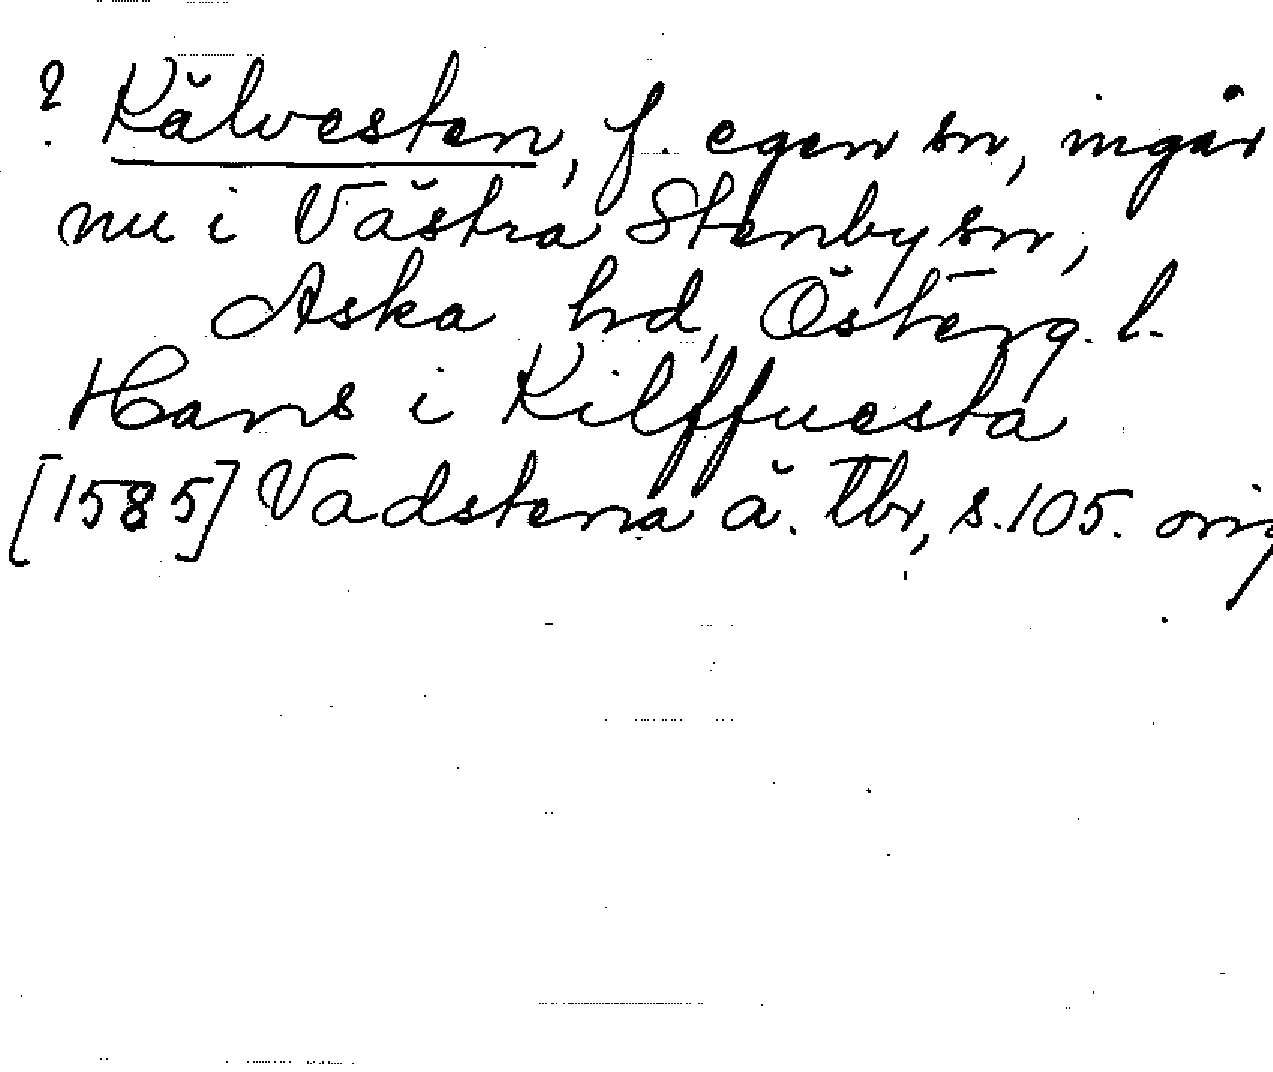 ? Kälvesten, f. egen sn, ingår
nu i Västra Stenby sn,
Aska hd, Österg. l.
Hans i Kilffuesta
[1585] Vadstena ä. tbr, s. 105. orig